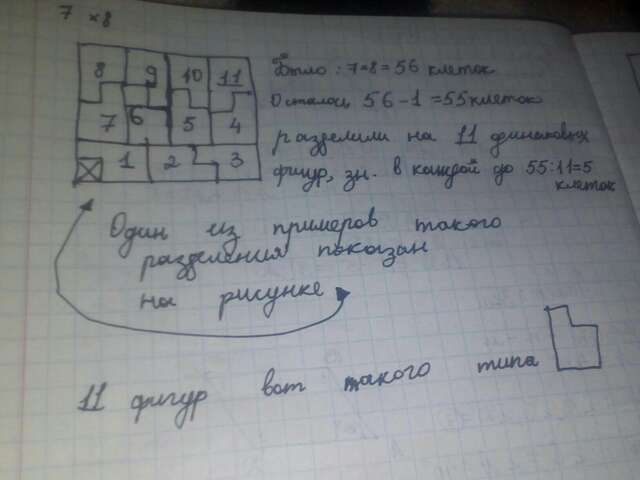 7 × 8
8 9 10 11
7 6 5 4
1 2 3
Было : 7×8 = 56 клеток
Осталось 56 - 1 = 55 клеток
разделили на 11 одинаковых
фигур, зн. в каждой по 55:11=5
клеток
Один из примеров такого
разделения показан
на рисунке
11 фигур вот такого типа